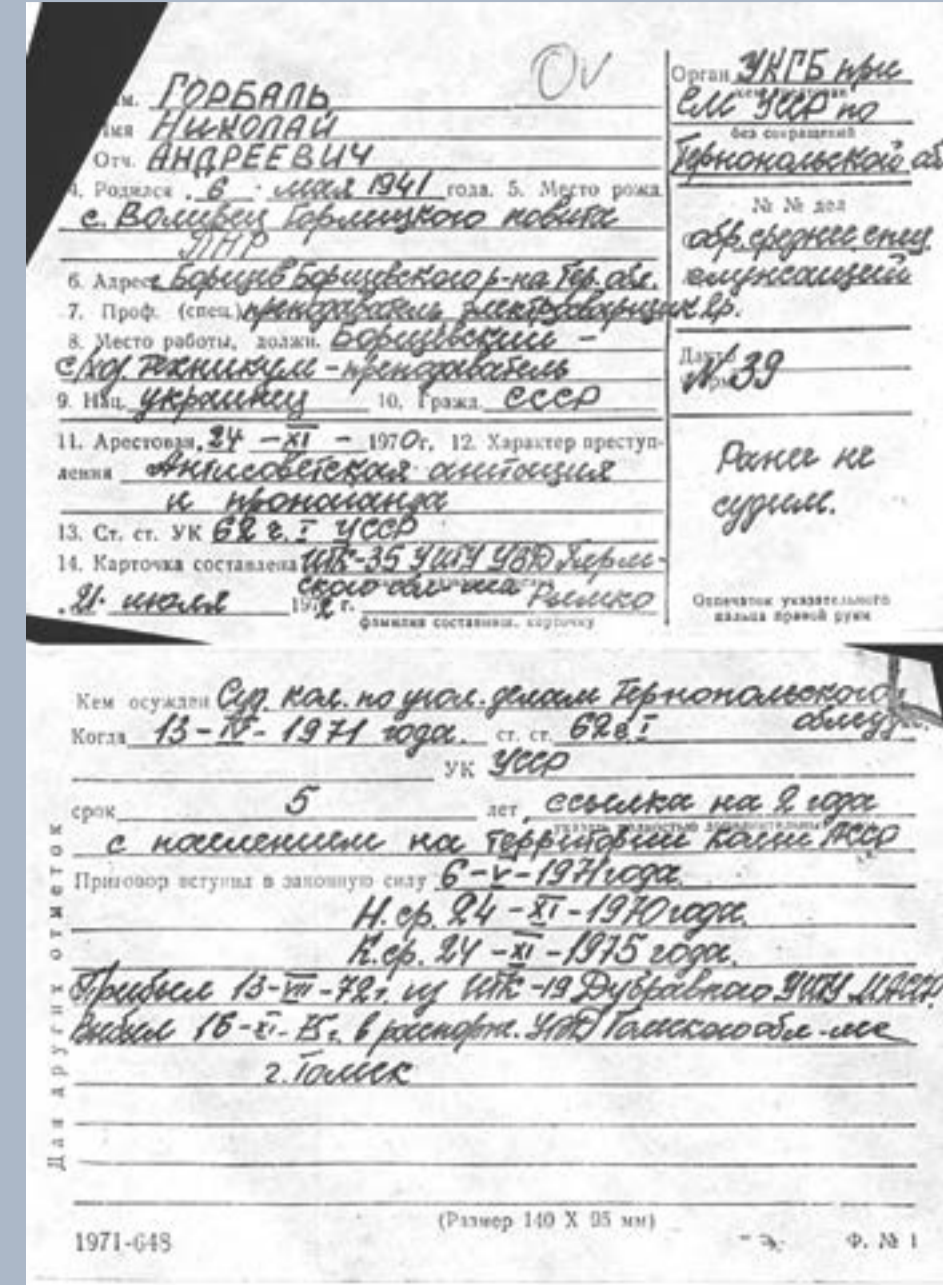 Фам. ГОРБАЛЬ
Имя НИКОЛАЙ
Отч. АНДРЕЕВИЧ
4. Родился 6 мая 1941 года. 5. Место рожд.
с. Воливец Горлицкого повита
ПНР
6. Адрес г. Борщев Борщевского р-на Тер. обл.
7. Проф. (спец.) преподаватель
8. Место работы, должн. Борщевский –
с/хоз. техникум – преподаватель
9. Нац. украинец 10. Гражд. СССР
11. Арестован 24 – XI – 1970 г. 12. Характер преступ-
ления Антисоветская агитация
и пропаганда
13. Ст. ст. УК 62 ч. I УССР
14. Карточка составлена ИТК-35 УИТУ УВД Перм-
ского обл-ма
21 июля 1972 г.
фамилия составивш. карточку
Орган УКГБ при
СМ УССР по
без сокращений
Тернопольской об
№ № дел
обр. среднее спец
служащий
№39
Ранее не
судим.
Отпечаток указательного
пальца правой руки
Кем осужден Суд. кол. по угол. делам Тернопольского
облсуда
Когда 13 – IV – 1971 года. ст. ст. 62 ч. I
УК УССР
срок 5 лет, ссылка на 2 года
с поселением на территории Коми АССР
Приговор вступил в законную силу 6 – V – 1971 года.
Н. ср. 24 – XI – 1970 года.
К. ср. 24 – XI – 1975 года.
Прибыл 13 – VII – 72 г. из ИТК -19 Дубравного УИТУ МАССР
Выбыл 16 – XI – 75 г. в распорж. УВД Томского обл-ма
г. Томск
Для других отметок
(Размер 140 X 95 мм)
1971-648
Ф. № 1